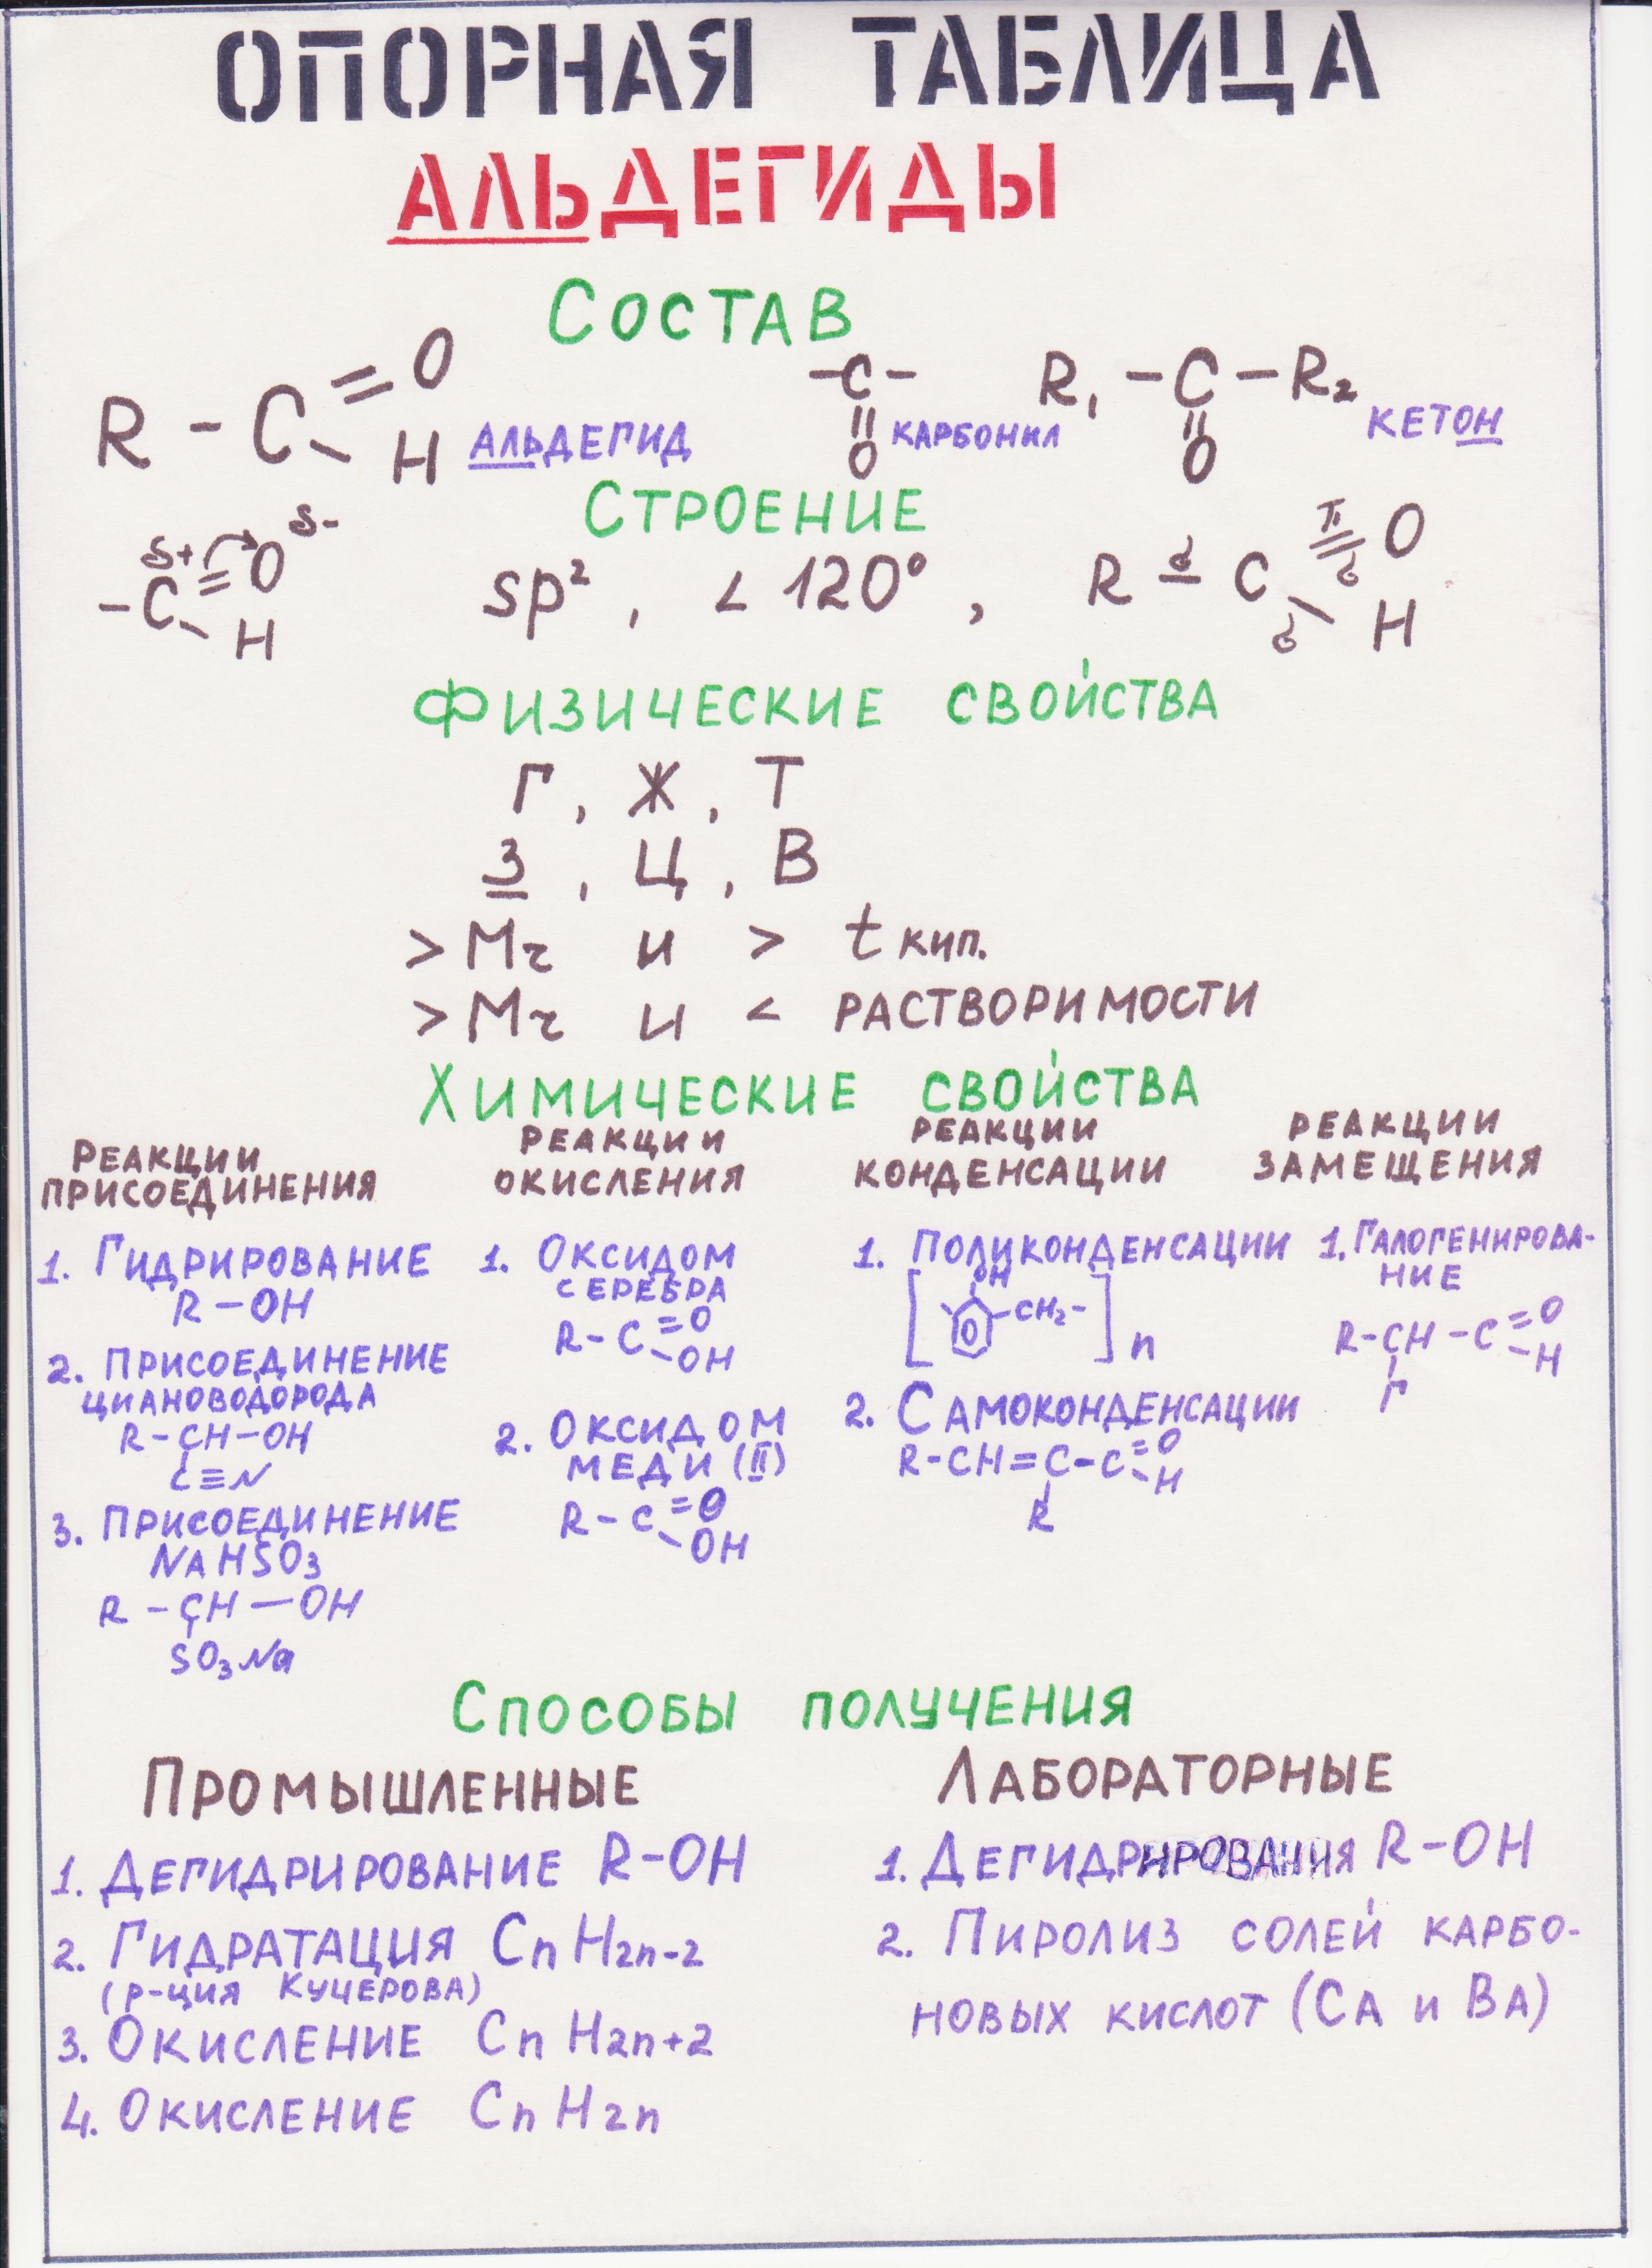 ОПОРНАЯ ТАБЛИЦА
АЛЬДЕГИДЫ
СОСТАВ
R - C =O -H АЛЬДЕГИД
-C- || O КАРБОНИЛ
R₁ - C - R₂ || O КЕТОН
СТРОЕНИЕ
-C =O -H δ+ δ-
sp² , < 120° ,
R -σ C =O π σ -H σ
ФИЗИЧЕСКИЕ СВОЙСТВА
Г, Ж, Т
З, Ц, В
> Mr и > t кип.
> Mr и < РАСТВОРИМОСТИ
ХИМИЧЕСКИЕ СВОЙСТВА
РЕАКЦИИ
ПРИСОЕДИНЕНИЯ
1. ГИДРИРОВАНИЕ
R-OH
2. ПРИСОЕДИНЕНИЕ
ЦИАНОВОДОРОДА
R-CH-OH
C≡N
3. ПРИСОЕДИНЕНИЕ
NAHSO₃
R-CH-OH
SO₃Na
РЕАКЦИИ
ОКИСЛЕНИЯ
1. ОКСИДОМ
СЕРЕБРА
R-C =O -OH
2. ОКСИДОМ
МЕДИ (II)
R-C =O -OH
РЕАКЦИИ
КОНДЕНСАЦИИ
1. ПОЛИКОНДЕНСАЦИИ
[ OH -CH₂- ]n
2. САМОКОНДЕНСАЦИИ
R-CH=C-C =O -H
R
РЕАКЦИИ
ЗАМЕЩЕНИЯ
1. ГАЛОГЕНИРОВА-
НИЕ
R-CH-C =O -H
Г
СПОСОБЫ ПОЛУЧЕНИЯ
ПРОМЫШЛЕННЫЕ
1. ДЕГИДРИРОВАНИЕ R-OH
2. ГИДРАТАЦИЯ CnH2n-2
(Р-ЦИЯ КУЧЕРОВА)
3. ОКИСЛЕНИЕ CnH2n+2
4. ОКИСЛЕНИЕ CnH2n
ЛАБОРАТОРНЫЕ
1. ДЕГИДРИРОВАНИЯ R-OH
2. ПИРОЛИЗ СОЛЕЙ КАРБО-
НОВЫХ КИСЛОТ (CA и BA)